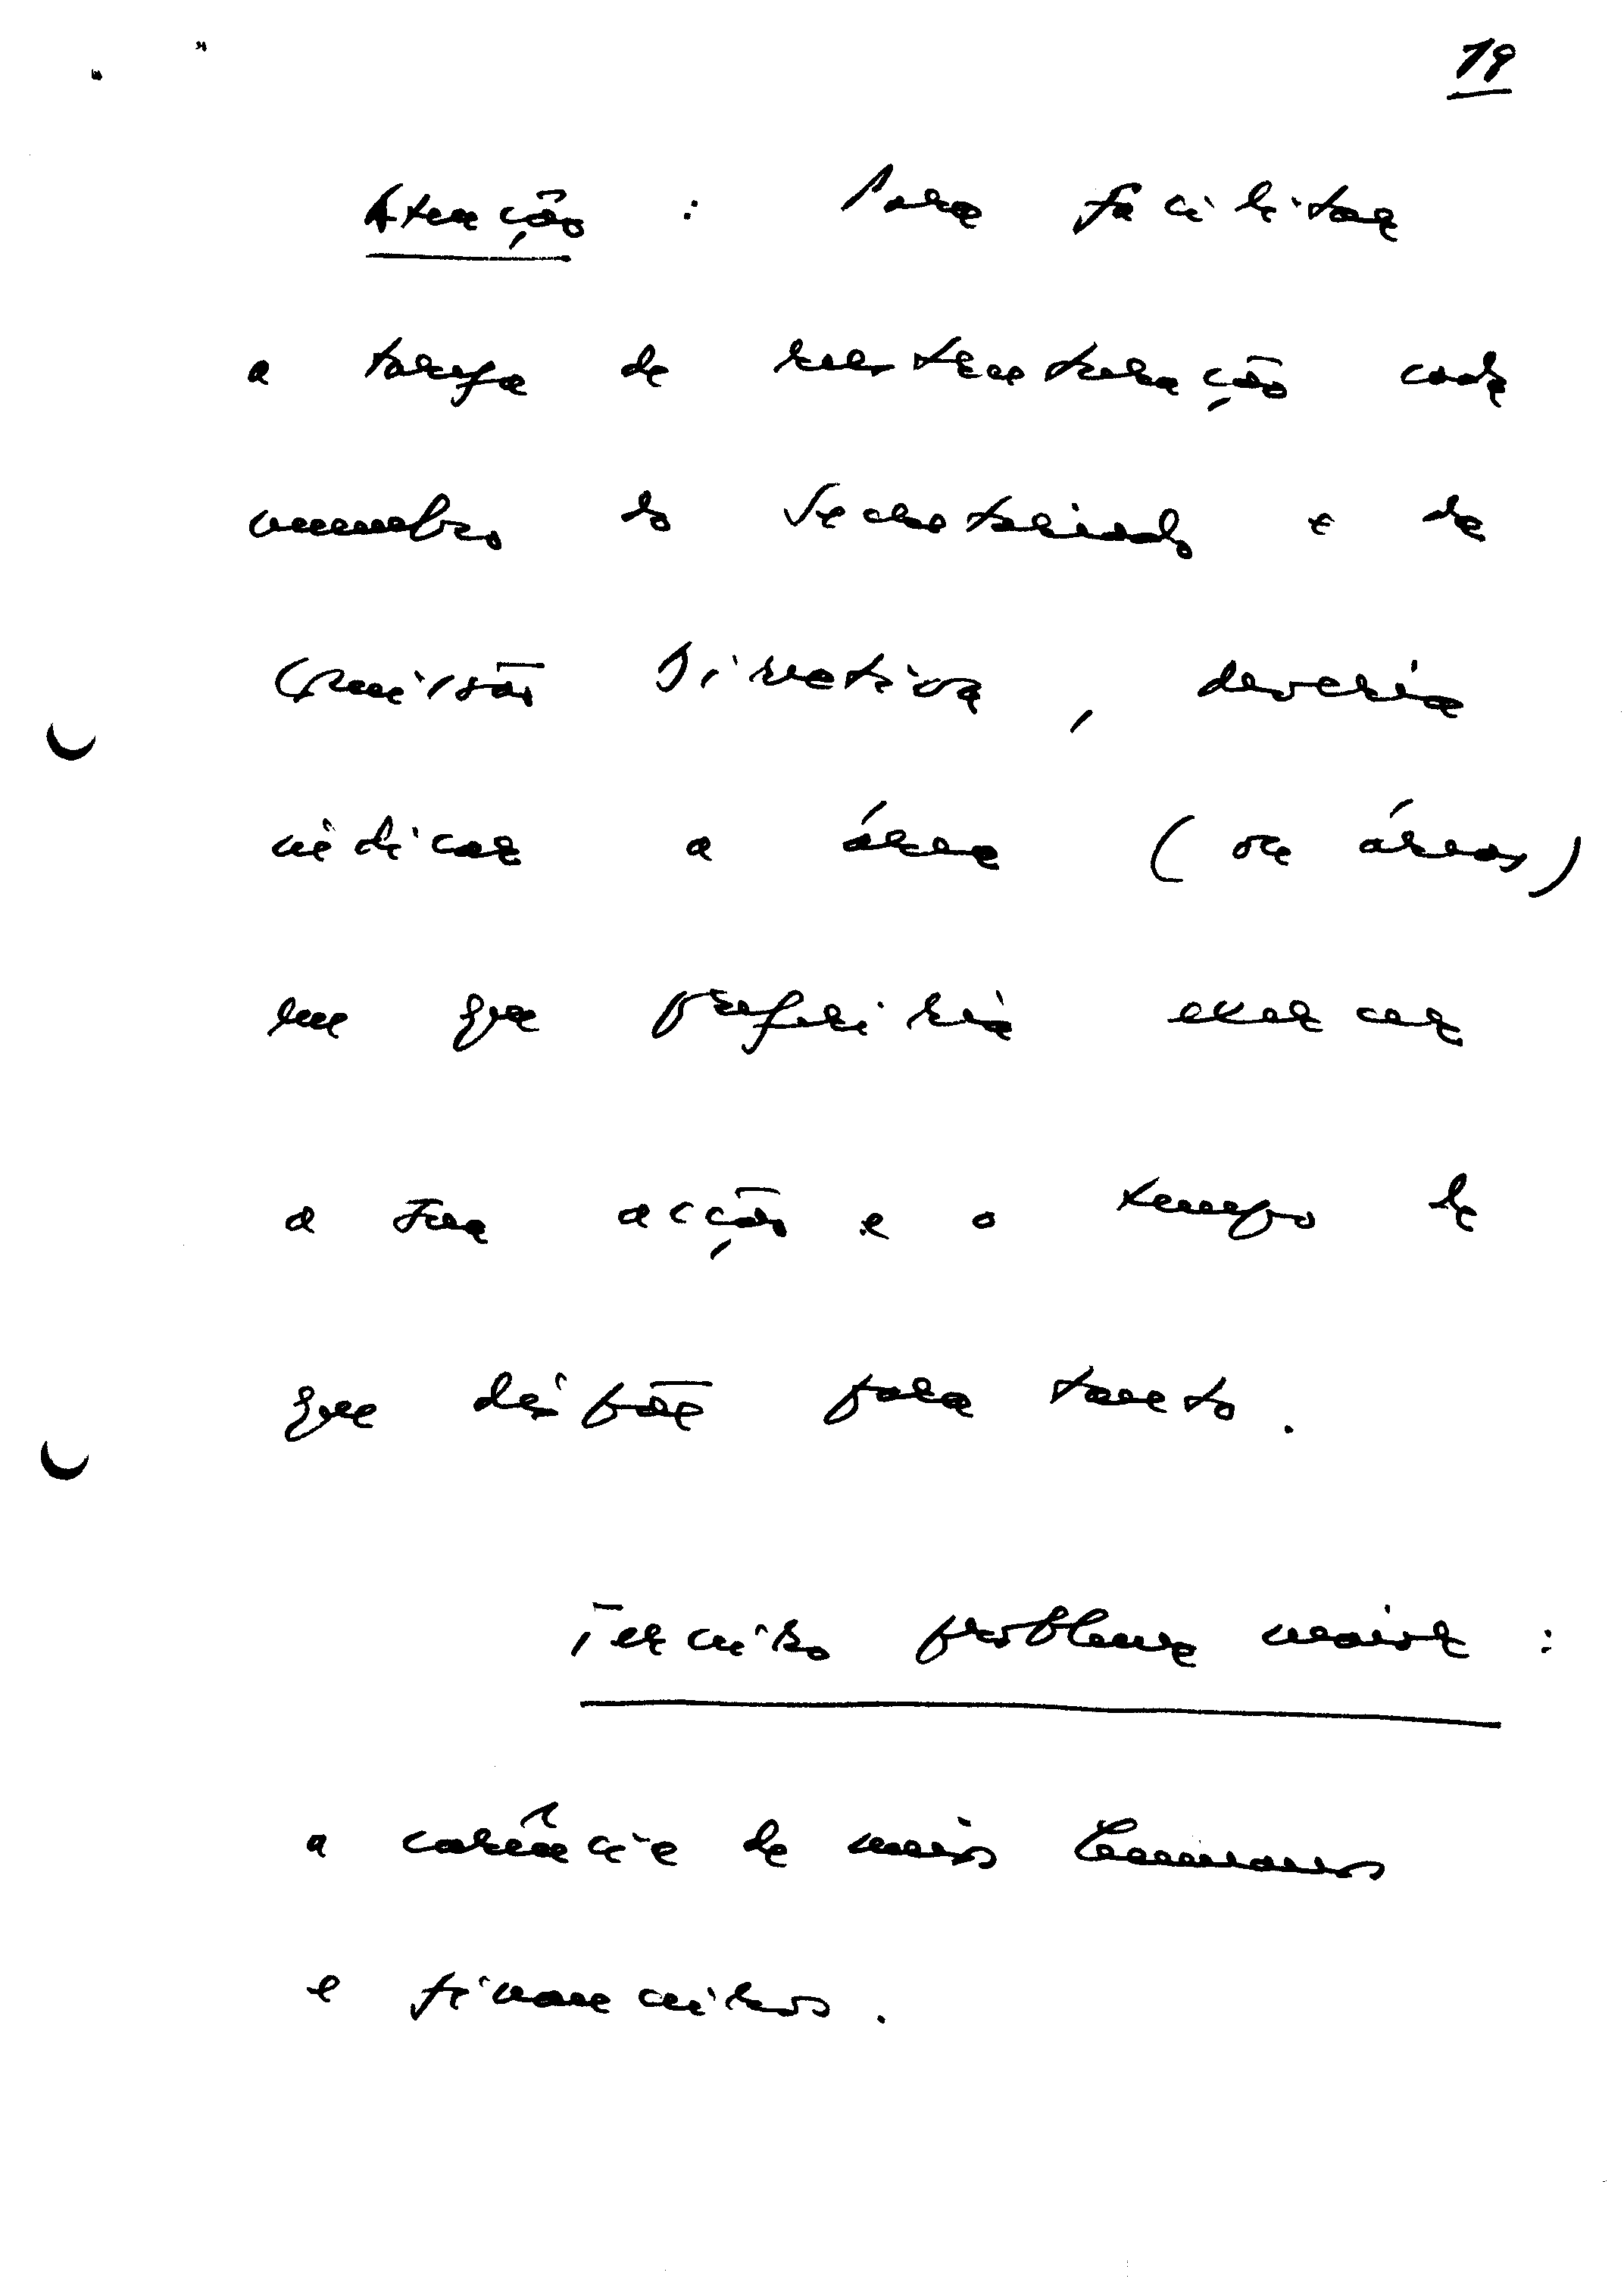 19
Atenção : Para facilitar
a tarefa de reestruturação cada
membro do Secretariado e da
Comissão Directiva, deveria
indicar a área (ou áreas)
em que preferiria exercer
a sua acção e o tempo de
que dispõe para tanto.
Terceiro problema maior :
a carência de meios humanos
e financeiros.